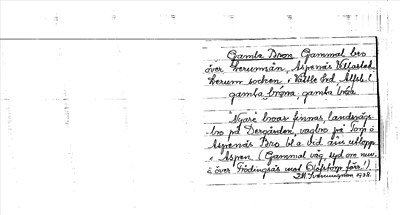 Gamla Bron Gammal bro
över Lerumsån, Aspenäs Vttastad
Lerum socken i Vättle hd, Älfsb. l.
gamla bróna, gamla bróa
Nyare broar finnas, landsvägs-
bro på Dergården, vagbro på Torp o
Aspenäs Bro bl a vid åns utlopp
i Aspen. (Gammal väg syd om nuv.
o över Tödingsås mot Olofstorp förr!)
1938.